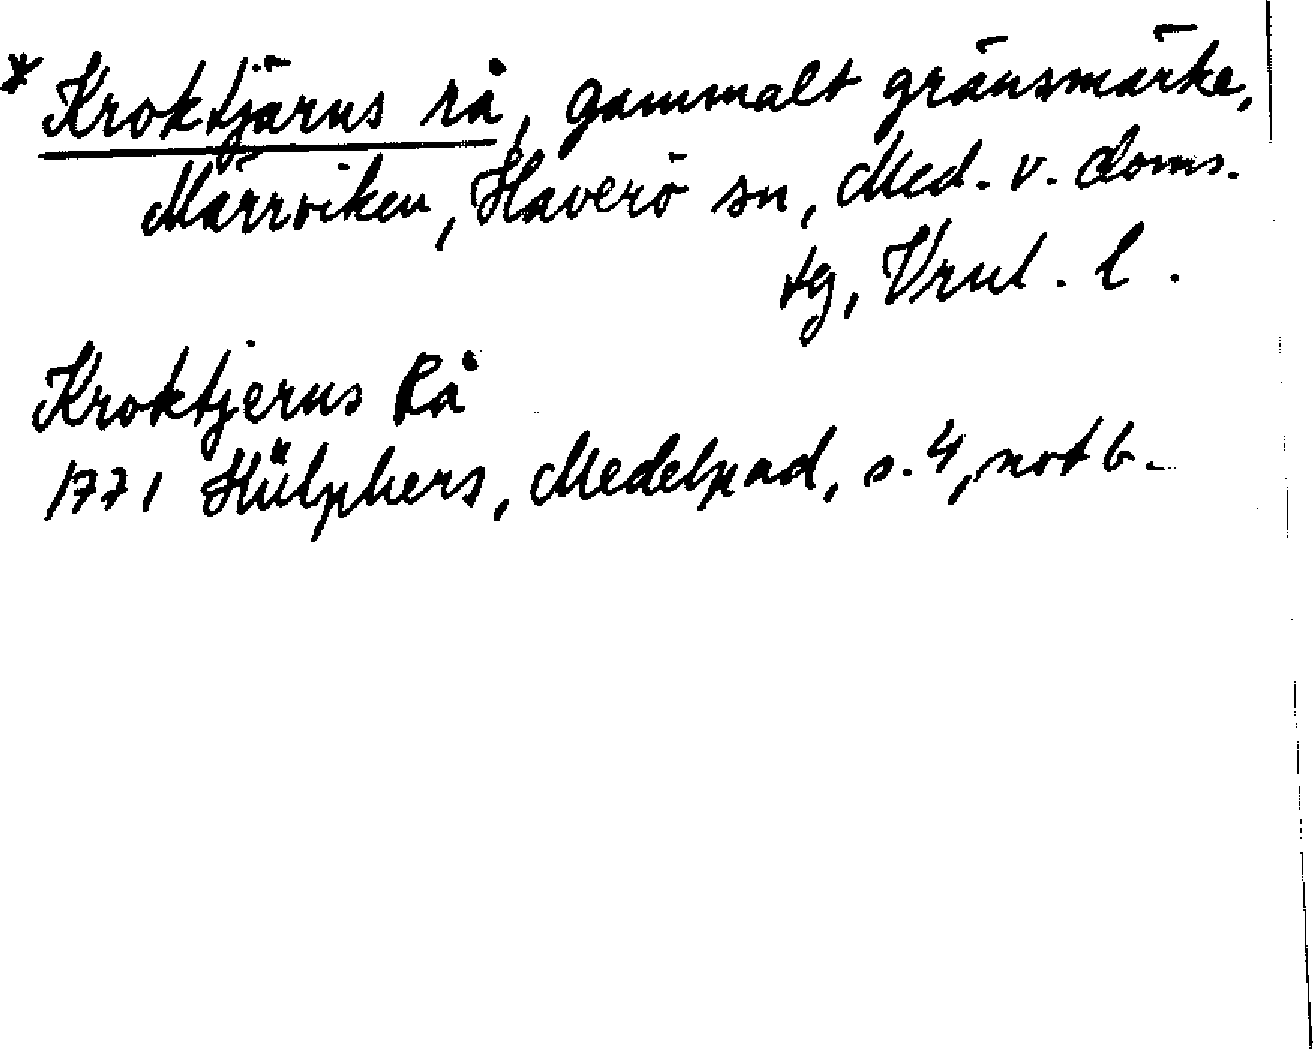 * Kroktjärns rå, gammalt gränsmärke,
Märrviken, Haverö sn, Med. v. doms.
tg, Vrnl. l.
Kroktjerns Rå
1771 Hülphers, Medelpad, s. 4, not b.